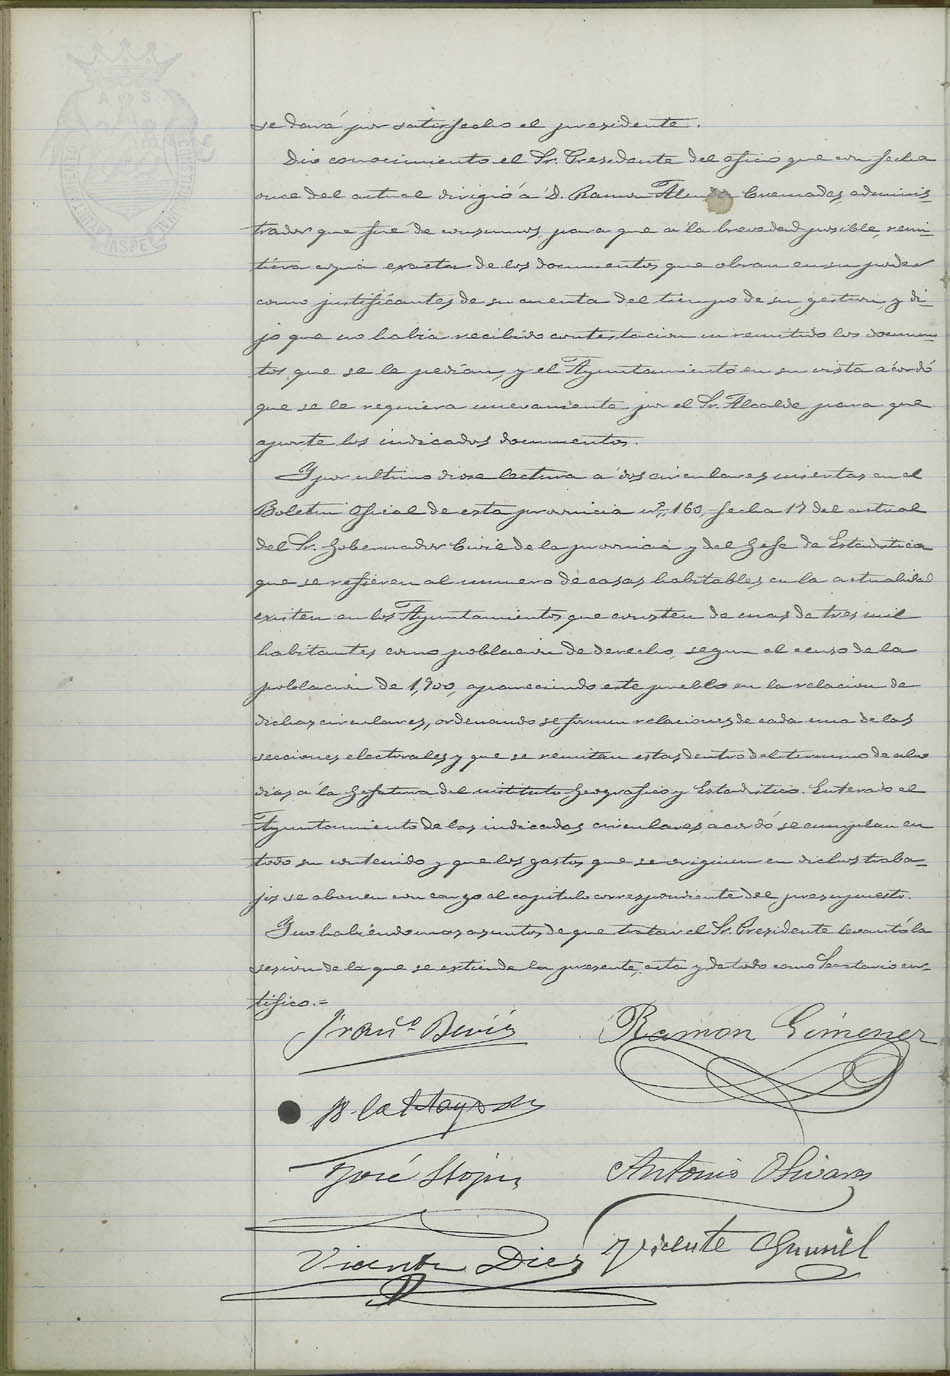 se dará por satisfecho el presidente.
Dio conocimiento el Sr. Presidente del oficio que con fecha
once del actual dirigió á D. Ramon Cremades, adminis-
trador que fué de consumos, para que a la brevedad posible, remi-
tiera copia exacta de los documentos, que obran en su poder
como justificantes de su cuenta del tiempo de su gestion, y di-
jo que no habia recibido contestacion ni remitido los documen-
tos que se le pedian, y el Ayuntamiento en su vista acordó
que se le requiera nuevamente por el Sr. Alcalde para que
aporte los indicados documentos.
Y por ultimo diose lectura a dos circulares insertas en el
Boletin Oficial de esta provincia nº 160, fecha 17 del actual
del Sr. Gobernador Civil de la provincia y del Gefe de Estadistica
que se refieren al numero de casas habitables, en la actualidad
existen en los Ayuntamientos que consten de mas de tres mil
habitantes, como poblacion de derecho, segun el censo de la
poblacion de 1,900, apareciendo este pueblo en la relacion de
dichas circulares, ordenando se formen relaciones de cada una de las
secciones electorales y que se remitan estas dentro del termino de
dias a la Gefatura del instituto Geografico y Estadistico. Enterado el
Ayuntamiento de las indicadas circulares acordó se cumplan en
todo su contenido y que los gastos que se originen en dichos traba-
jos se abonen con cargo al capitulo correspondiente del presupuesto.
Y no habiendo mas asuntos de que tratar el Sr. Presidente levantó la
sesion de la que se extiende la presente acta y de todo como Secretario cer-
tifico.=
Franco
Ramon Gimenez
José
Antonio Olivares
Vicente Diez
Vicente
ASPE